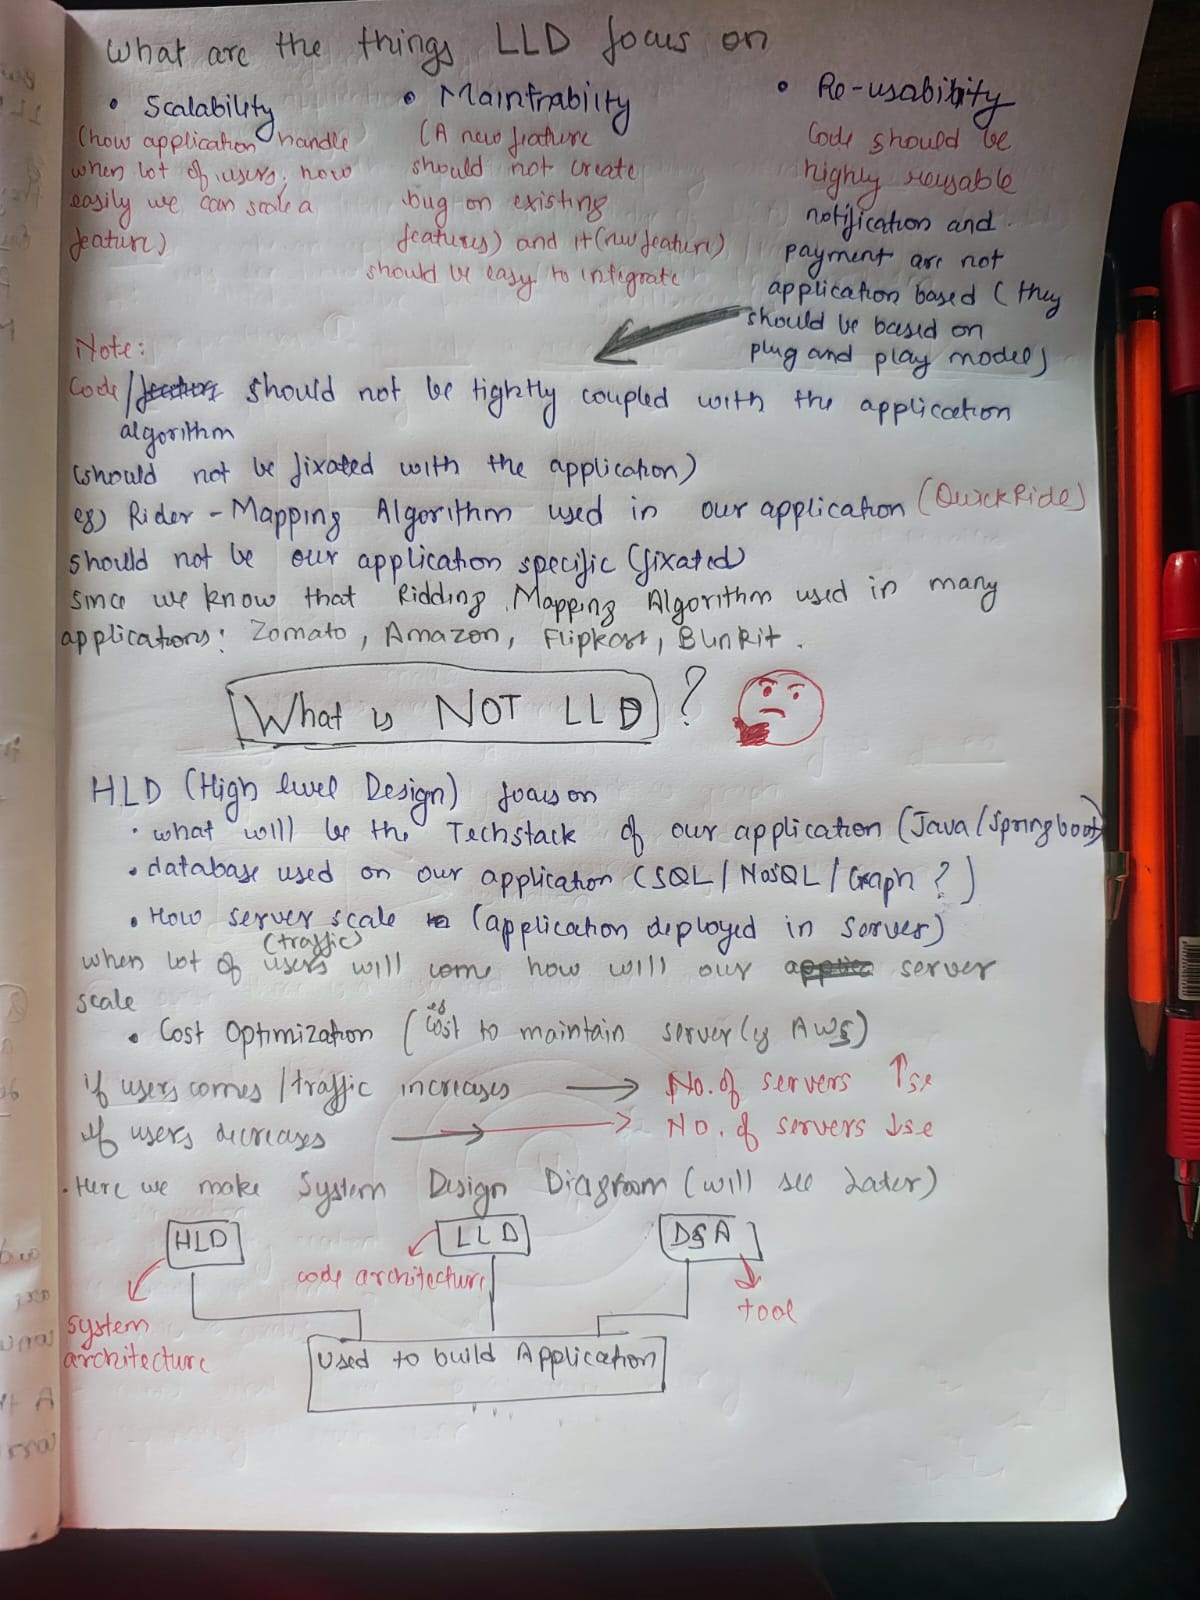 What are the things LLD focus on
• Scalability
(how application handle
when lot of users, how
easily we can scale a
feature)
• Maintnability
(A new feature
should not create
bug on existing
features) and it (new feature)
should be easy to integrate
• Re-usability
Code should be
highly reusable
notification and
payment are not
application based (they
should be based on
plug and play model)
Note:
Code/ should not be tightly coupled with the application
algorithm
(should not be fixated with the application)
eg) Rider-Mapping Algorithm used in our application (QuickRide)
should not be our application specific (fixated)
since we know that Ridding Mapping Algorithm used in many
applications: Zomato, Amazon, Flipkart, Blinkit.
What is NOT LLD ?
HLD (High level Design) focus on
• what will be the Techstack of our application (Java/Springboot)
• database used on our application (SQL/NoSQL/Graph ?)
• How server scale (application deployed in server)
(traffic)
when lot of users will come how will our server
scale
• Cost Optimization (eg cost to maintain server eg AWS)
if users comes/traffic increases → No. of servers ↑se
if users decreases → No. of servers ↓se
• Here we make System Design Diagram (will see later)
HLD
LLD
DSA
code architecture
tool
system
architecture
Used to build Application